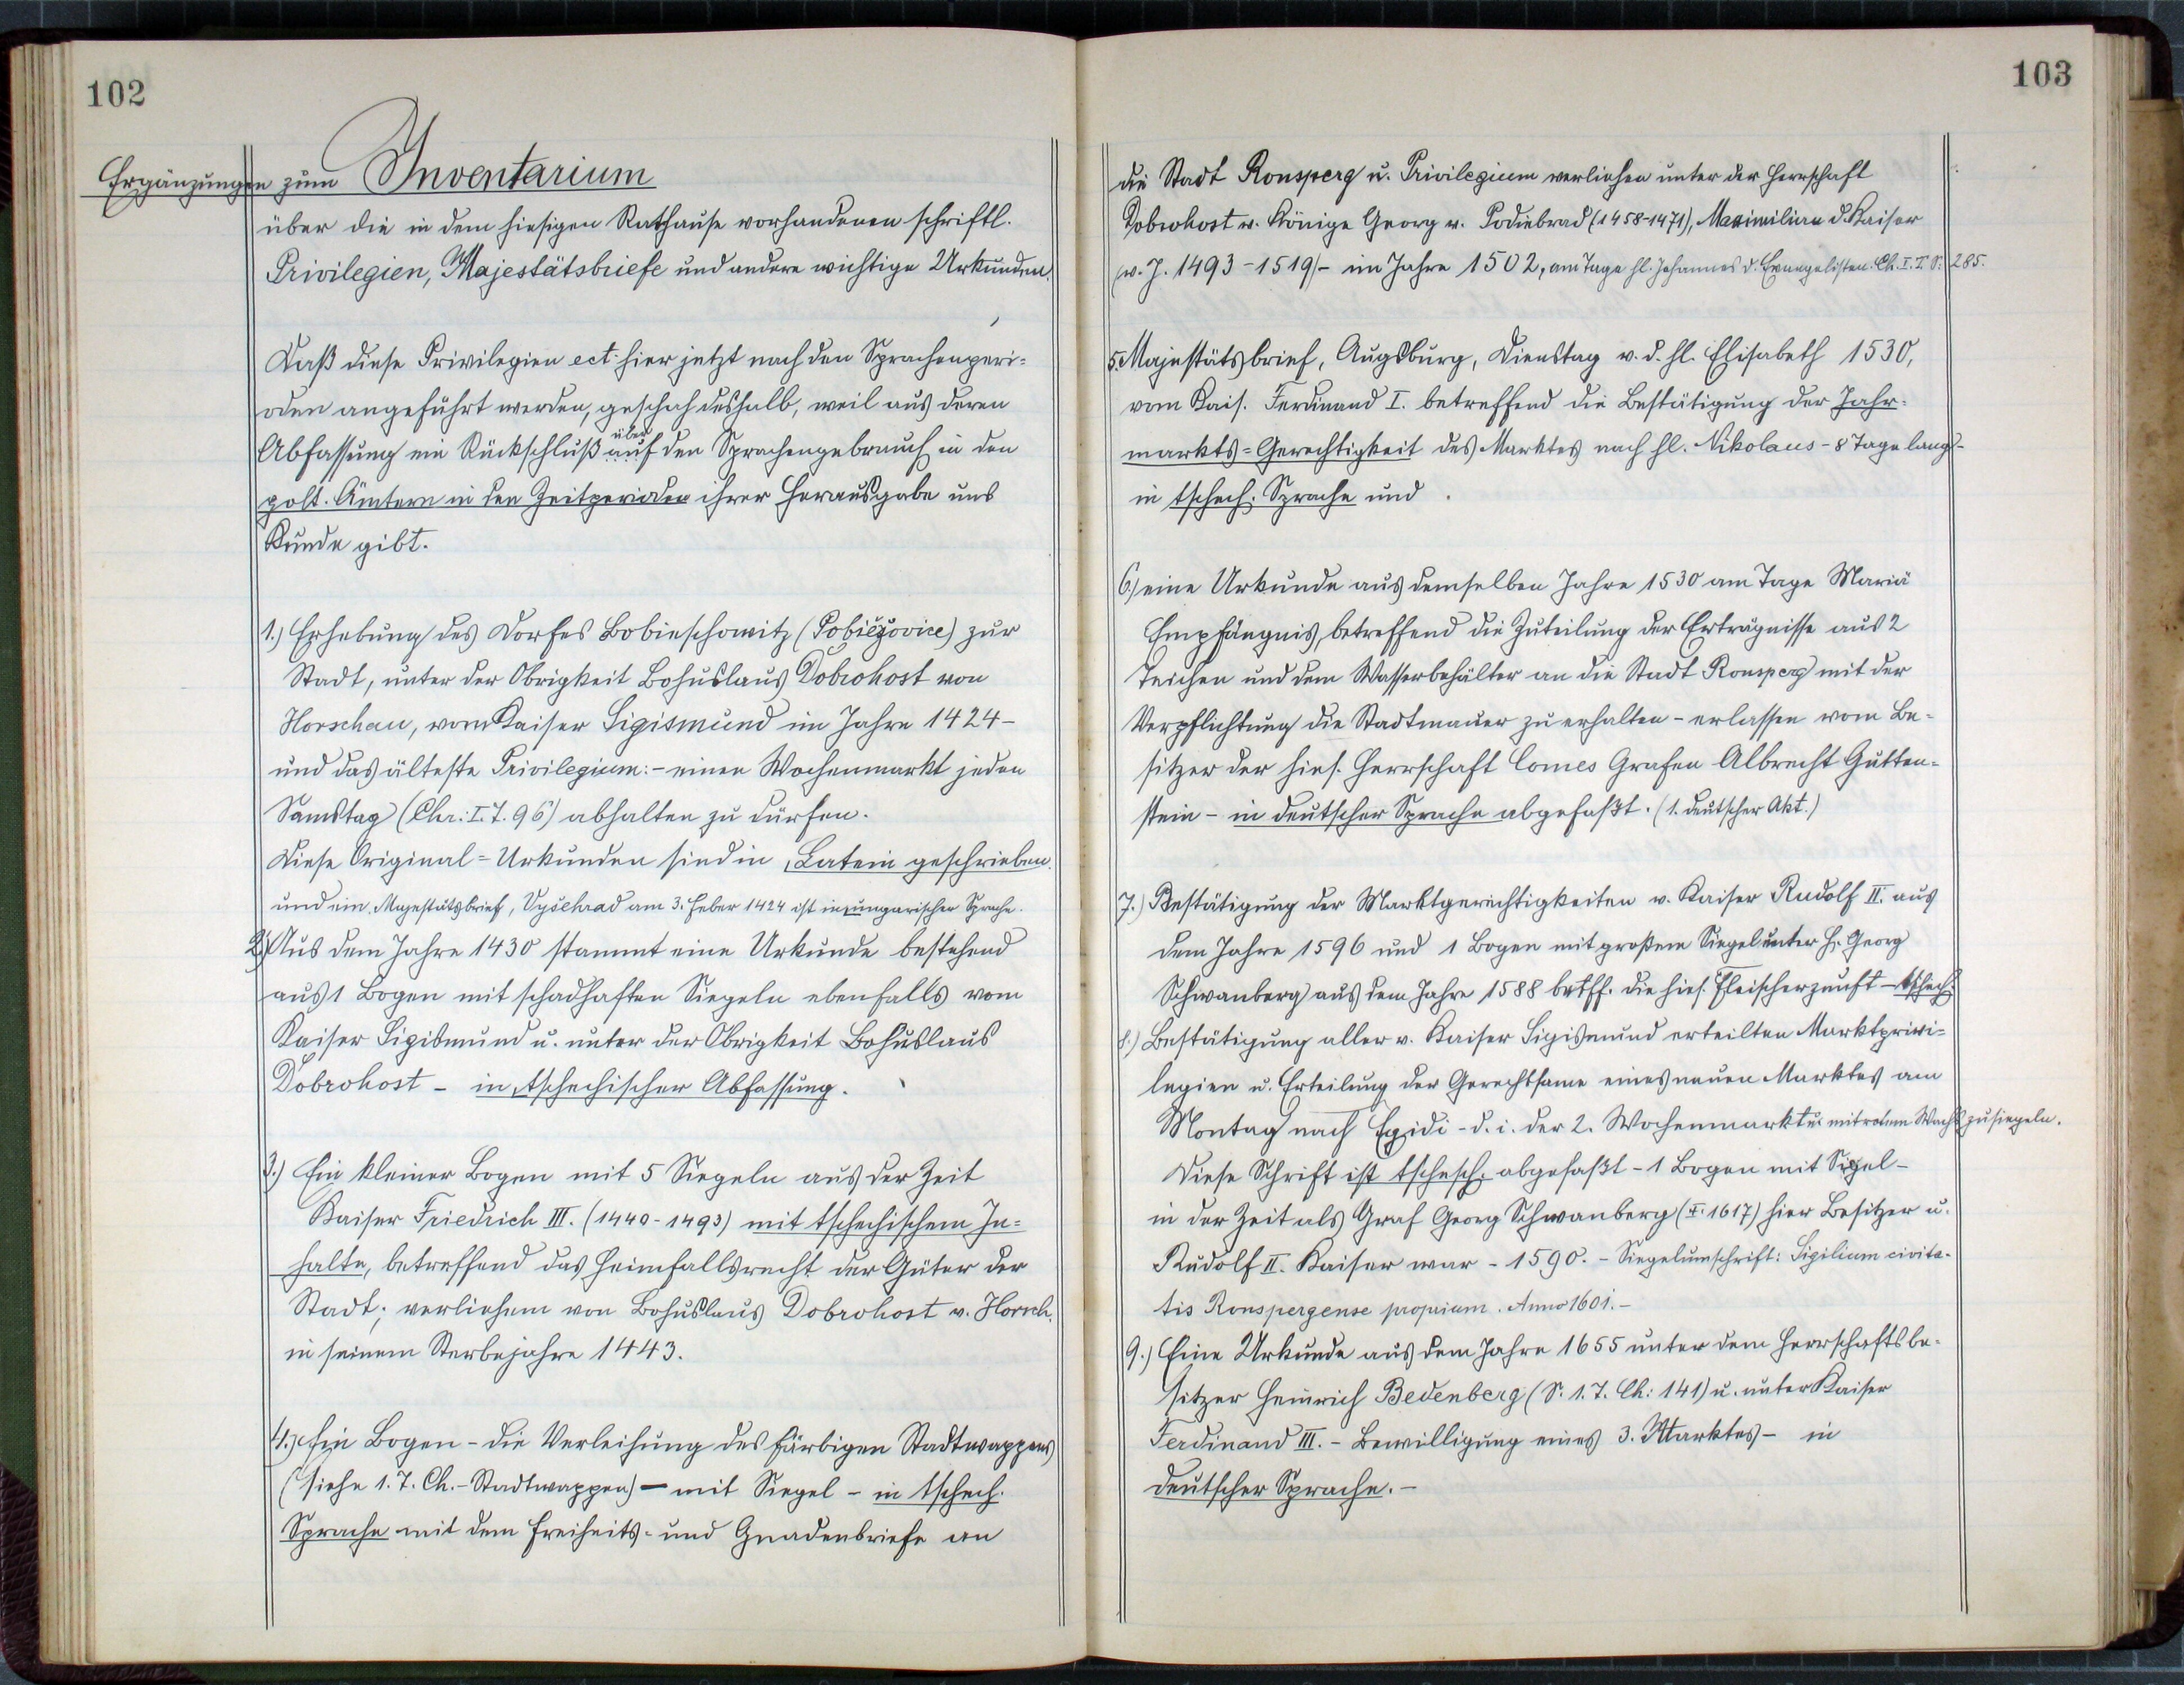 102
Ergänzungen zum Inventarium
über die in dem hiesigen Rathause vorhandenen schriftl.
Privilegien, Majestätsbriefe und andere wichtige Urkunden.
Daß diese Privilegien ect. hier jetzt nach den Sprachenperi-
oden angeführt werden, geschah deshalb, weil aus deren
über
Abfassung ein Rückschluß auf den Sprachengebrauch in den
polt. Ämtern in den Zeitperioden ihrer Herausgabe uns
Kunde gibt.
1.) Erhebung des Dorfes Bobieschowitz (Pobiěžovice) zur
Stadt, unter der Obrigkeit Bohuslaus Dobrohost von
Horschau, vom Kaiser Sigismund im Jahre 1424 –
und das älteste Privilegium: – einen Wochenmarkt jeden
Samstag (Chr: I. T. 96) abhalten zu dürfen.
Diese Original=Urkunden sind in Latein geschrieben.
und ein Majestätsbrief, Vyšehrad am 3. Feber 1424 ist in ungarischer Sprache.
2.) Aus dem Jahre 1430 stammt eine Urkunde bestehend
aus 1 Bogen mit schadhaften Siegeln ebenfalls vom
Kaiser Sigismund u. unter der Obrigkeit Bohuslaus
Dobrohost – in tschechischer Abfassung.
3.) Ein kleiner Bogen mit 5 Siegeln aus der Zeit
Kaiser Friedrich III. (1440-1493) mit tschechischem In=
halte, betreffend das Heimfallsrecht der Güter der
Stadt; verliehen von Bohuslaus Dobrohost v. Horsch.
in seinem Sterbejahre 1443.
4.) Ein Bogen – die Verleihung des färbigen Stadtwappens
(siehe 1. T. Ch. – Stadtwappen) – mit Siegel – in tschech.
Sprache mit dem Freiheits- und Gnadenbriefe an
103
die Stadt Ronsperg u. Privilegium verliehen unter der Herrschaft
Dobrohost v. Könige Georg v. Podiebrad (1458-1471), Maximilian d. Kaiser
(v. J. 1493-1519) – im Jahre 1502, am Tage hl. Johannes d. Evangelisten. Ch. I. T. S: 285.
5. Majestätsbrief, Augsburg, Dienstag v. d. hl. Elisabeth 1530,
vom Kais. Ferdinand I. betreffend die Bestätigung der Jahr-
markts=Gerechtigkeit des Marktes nach hl. Nikolaus – 8 Tage lang –
in tschech. Sprache und .
6.) eine Urkunde aus demselben Jahre 1530 am Tage Mariä
Empfängnis, betreffend die Zuteilung der Erträgnisse aus 2
Teichen und dem Wasserbehälter an die Stadt Ronsperg mit der
Verpflichtung die Stadtmauer zu erhalten – erlassen vom Be-
sitzer der hies. Herrschaft Comes Grafen Albrecht Gutten-
stein – in deutscher Sprache abgefaßt. (1. deutscher Akt.)
7.) Bestätigung der Marktgerechtigkeiten v. Kaiser Rudolf II. aus
dem Jahre 1596 und 1 Bogen mit großem Siegel unter H. Georg
Schwanberg aus dem Jahre 1588 betff. die hies. Fleischerzunft – tschech.
8.) Bestätigung aller v. Kaiser Sigismund erteilten Marktprivi-
legien u. Erteilung der Gerechtsame eines neuen Marktes am
Montag nach Egidi – d. i. der 2. Wochenmarkt u. mit rotem Wachs zu siegeln.
Diese Schrift ist tschech. abgefaßt – 1 Bogen mit Sigel –
in der Zeit als Graf Georg Schwanberg (†. 1617) hier Besitzer u.
Rudolf II. Kaiser war – 1590. – Siegelumschrift: Sigilium civita-
tis Ronspergense proprium. Anno 1601. –
9.) Eine Urkunde aus dem Jahre 1655 unter dem Herrschaftsbe-
sitzer Heinrich Bedenberg (S. 1. T. Ch: 141) u. unter Kaiser
Ferdinand III. – Bewilligung eines 3. Marktes – in
deutscher Sprache. –